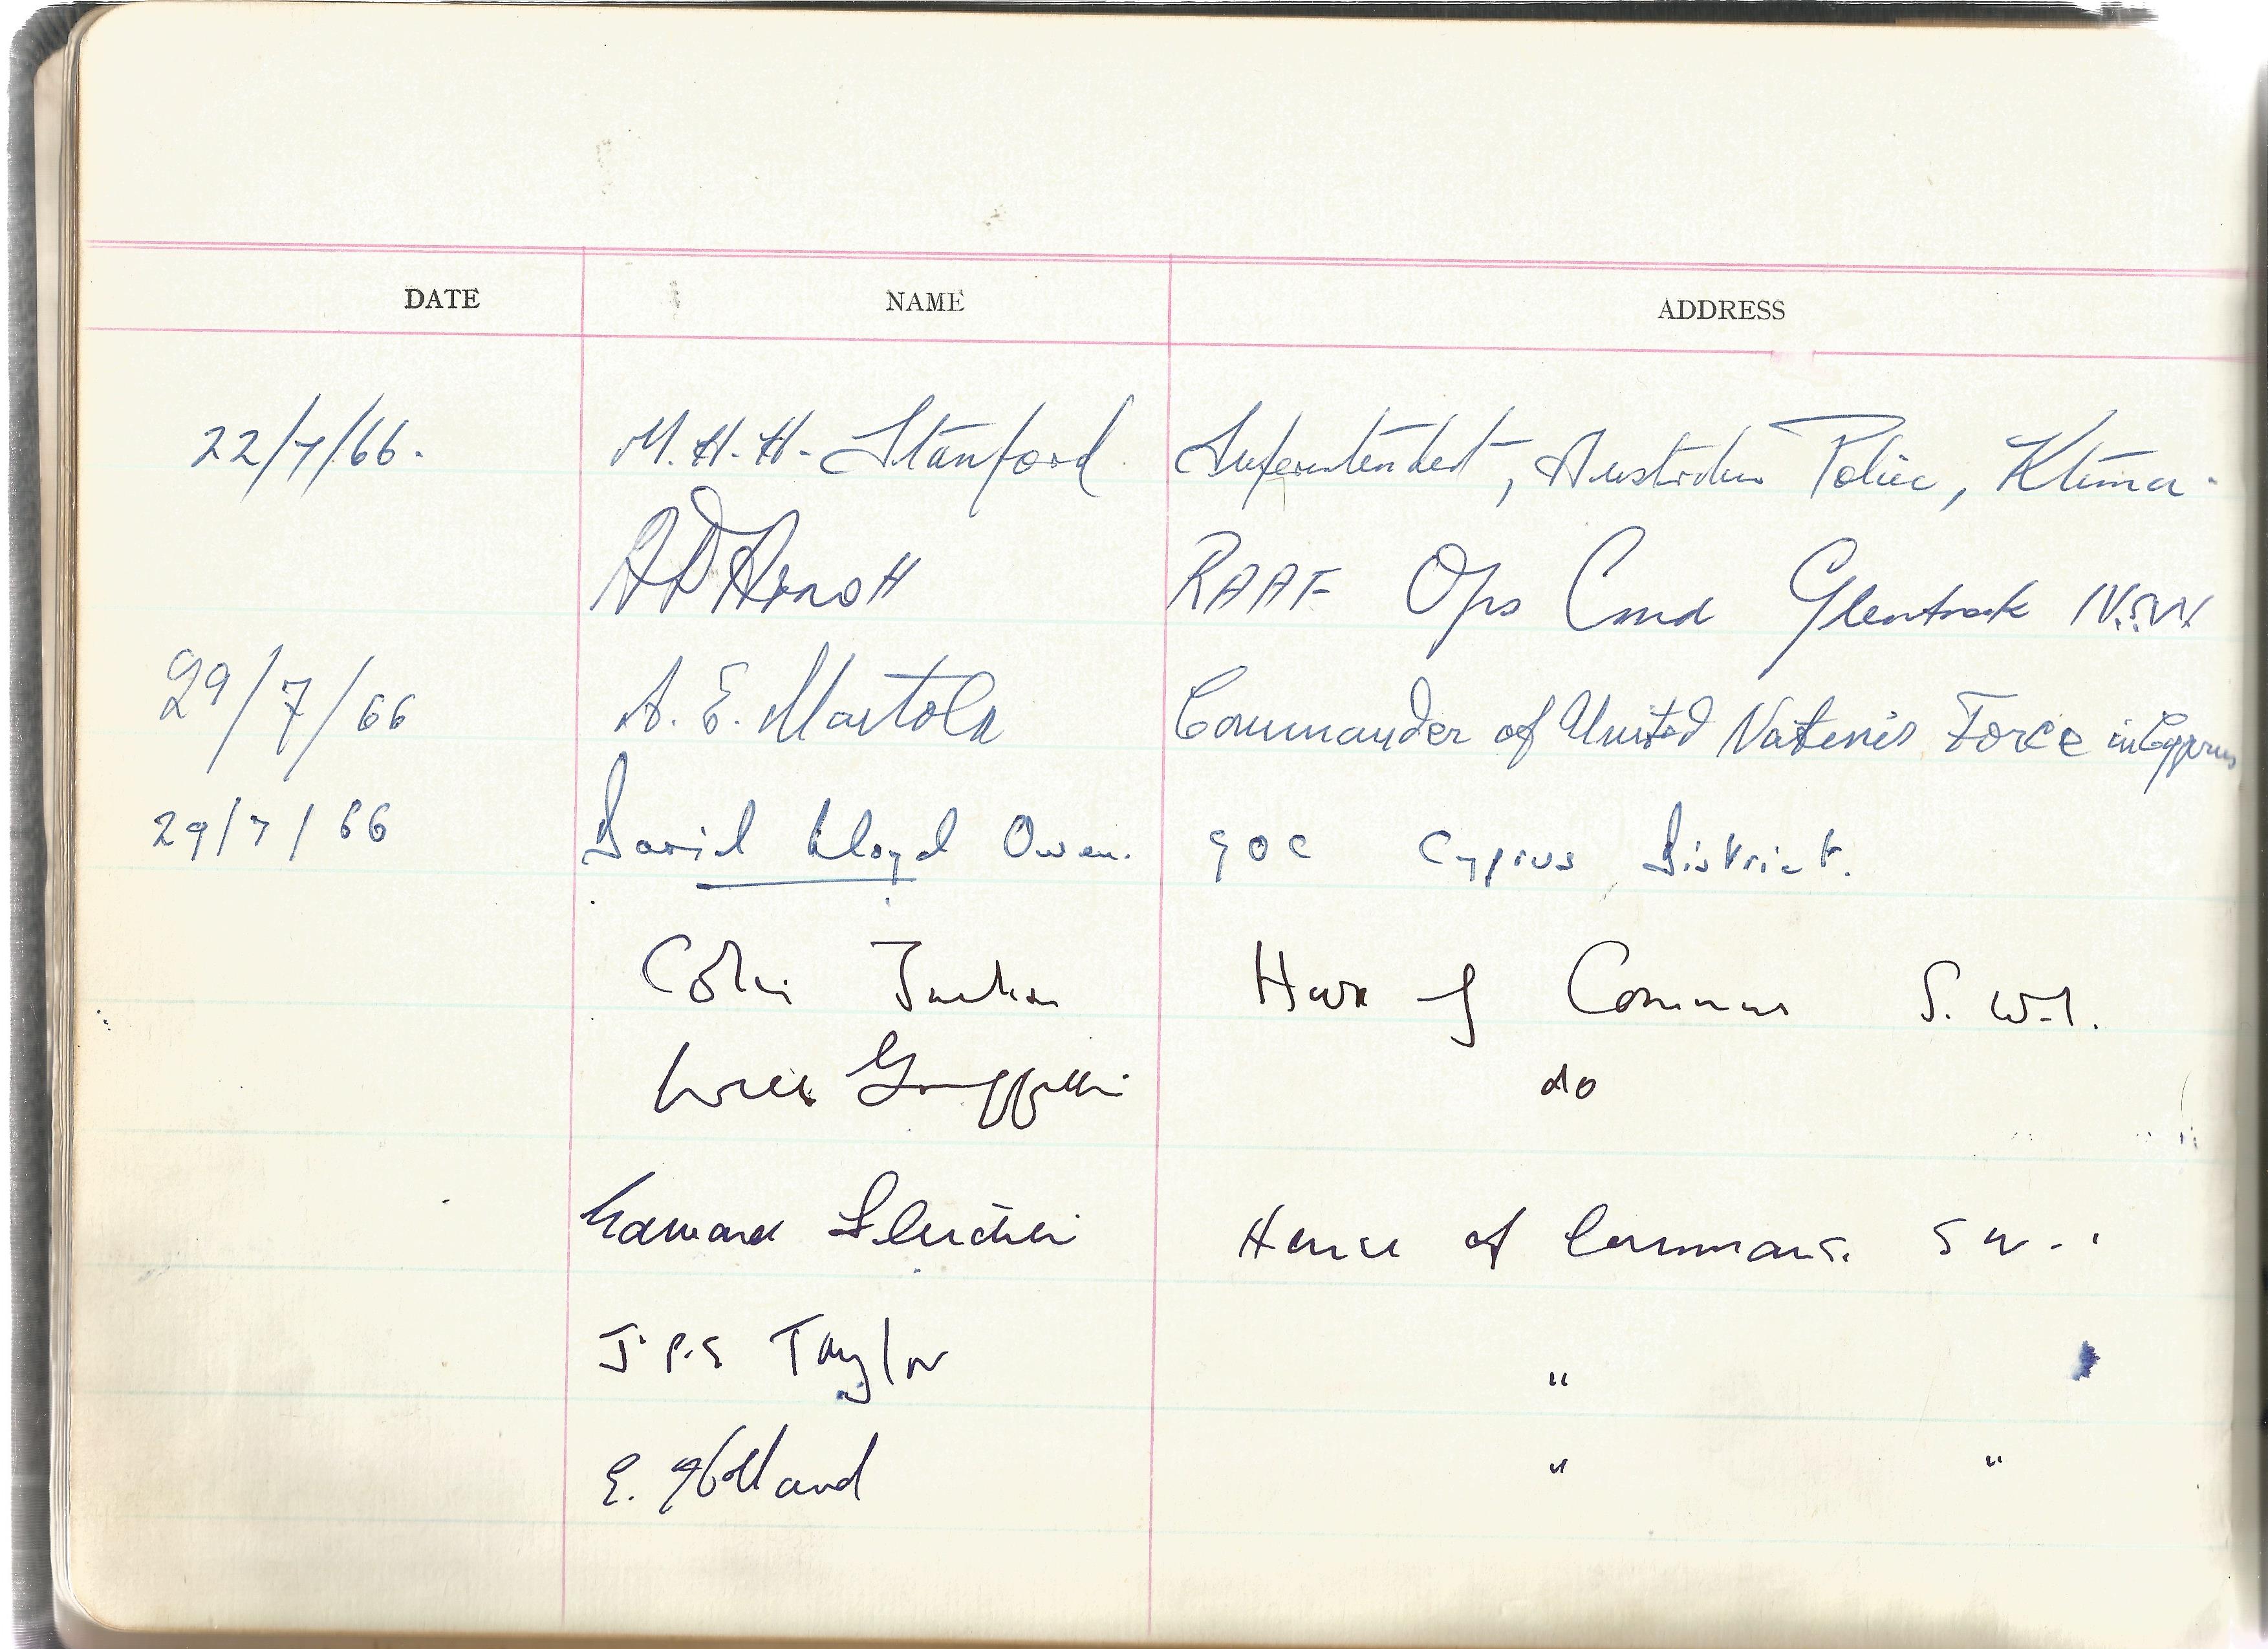 DATE NAME ADDRESS
22/7/66. M.H.H. Stanford Superintendent, Australian Police, Ktima.
RAAF Ops Cmd Glenbrook N.S.W.
29/7/66 A. E. Martola Commander of United Nations Force in Cyprus
29/7/66 David Lloyd Owen. GOC Cyprus District.
Colin Jackson House of Commons S.W.1.
Will Griffiths do
House of Commons. S W.1
J P.S Taylor "
E. Holland " "